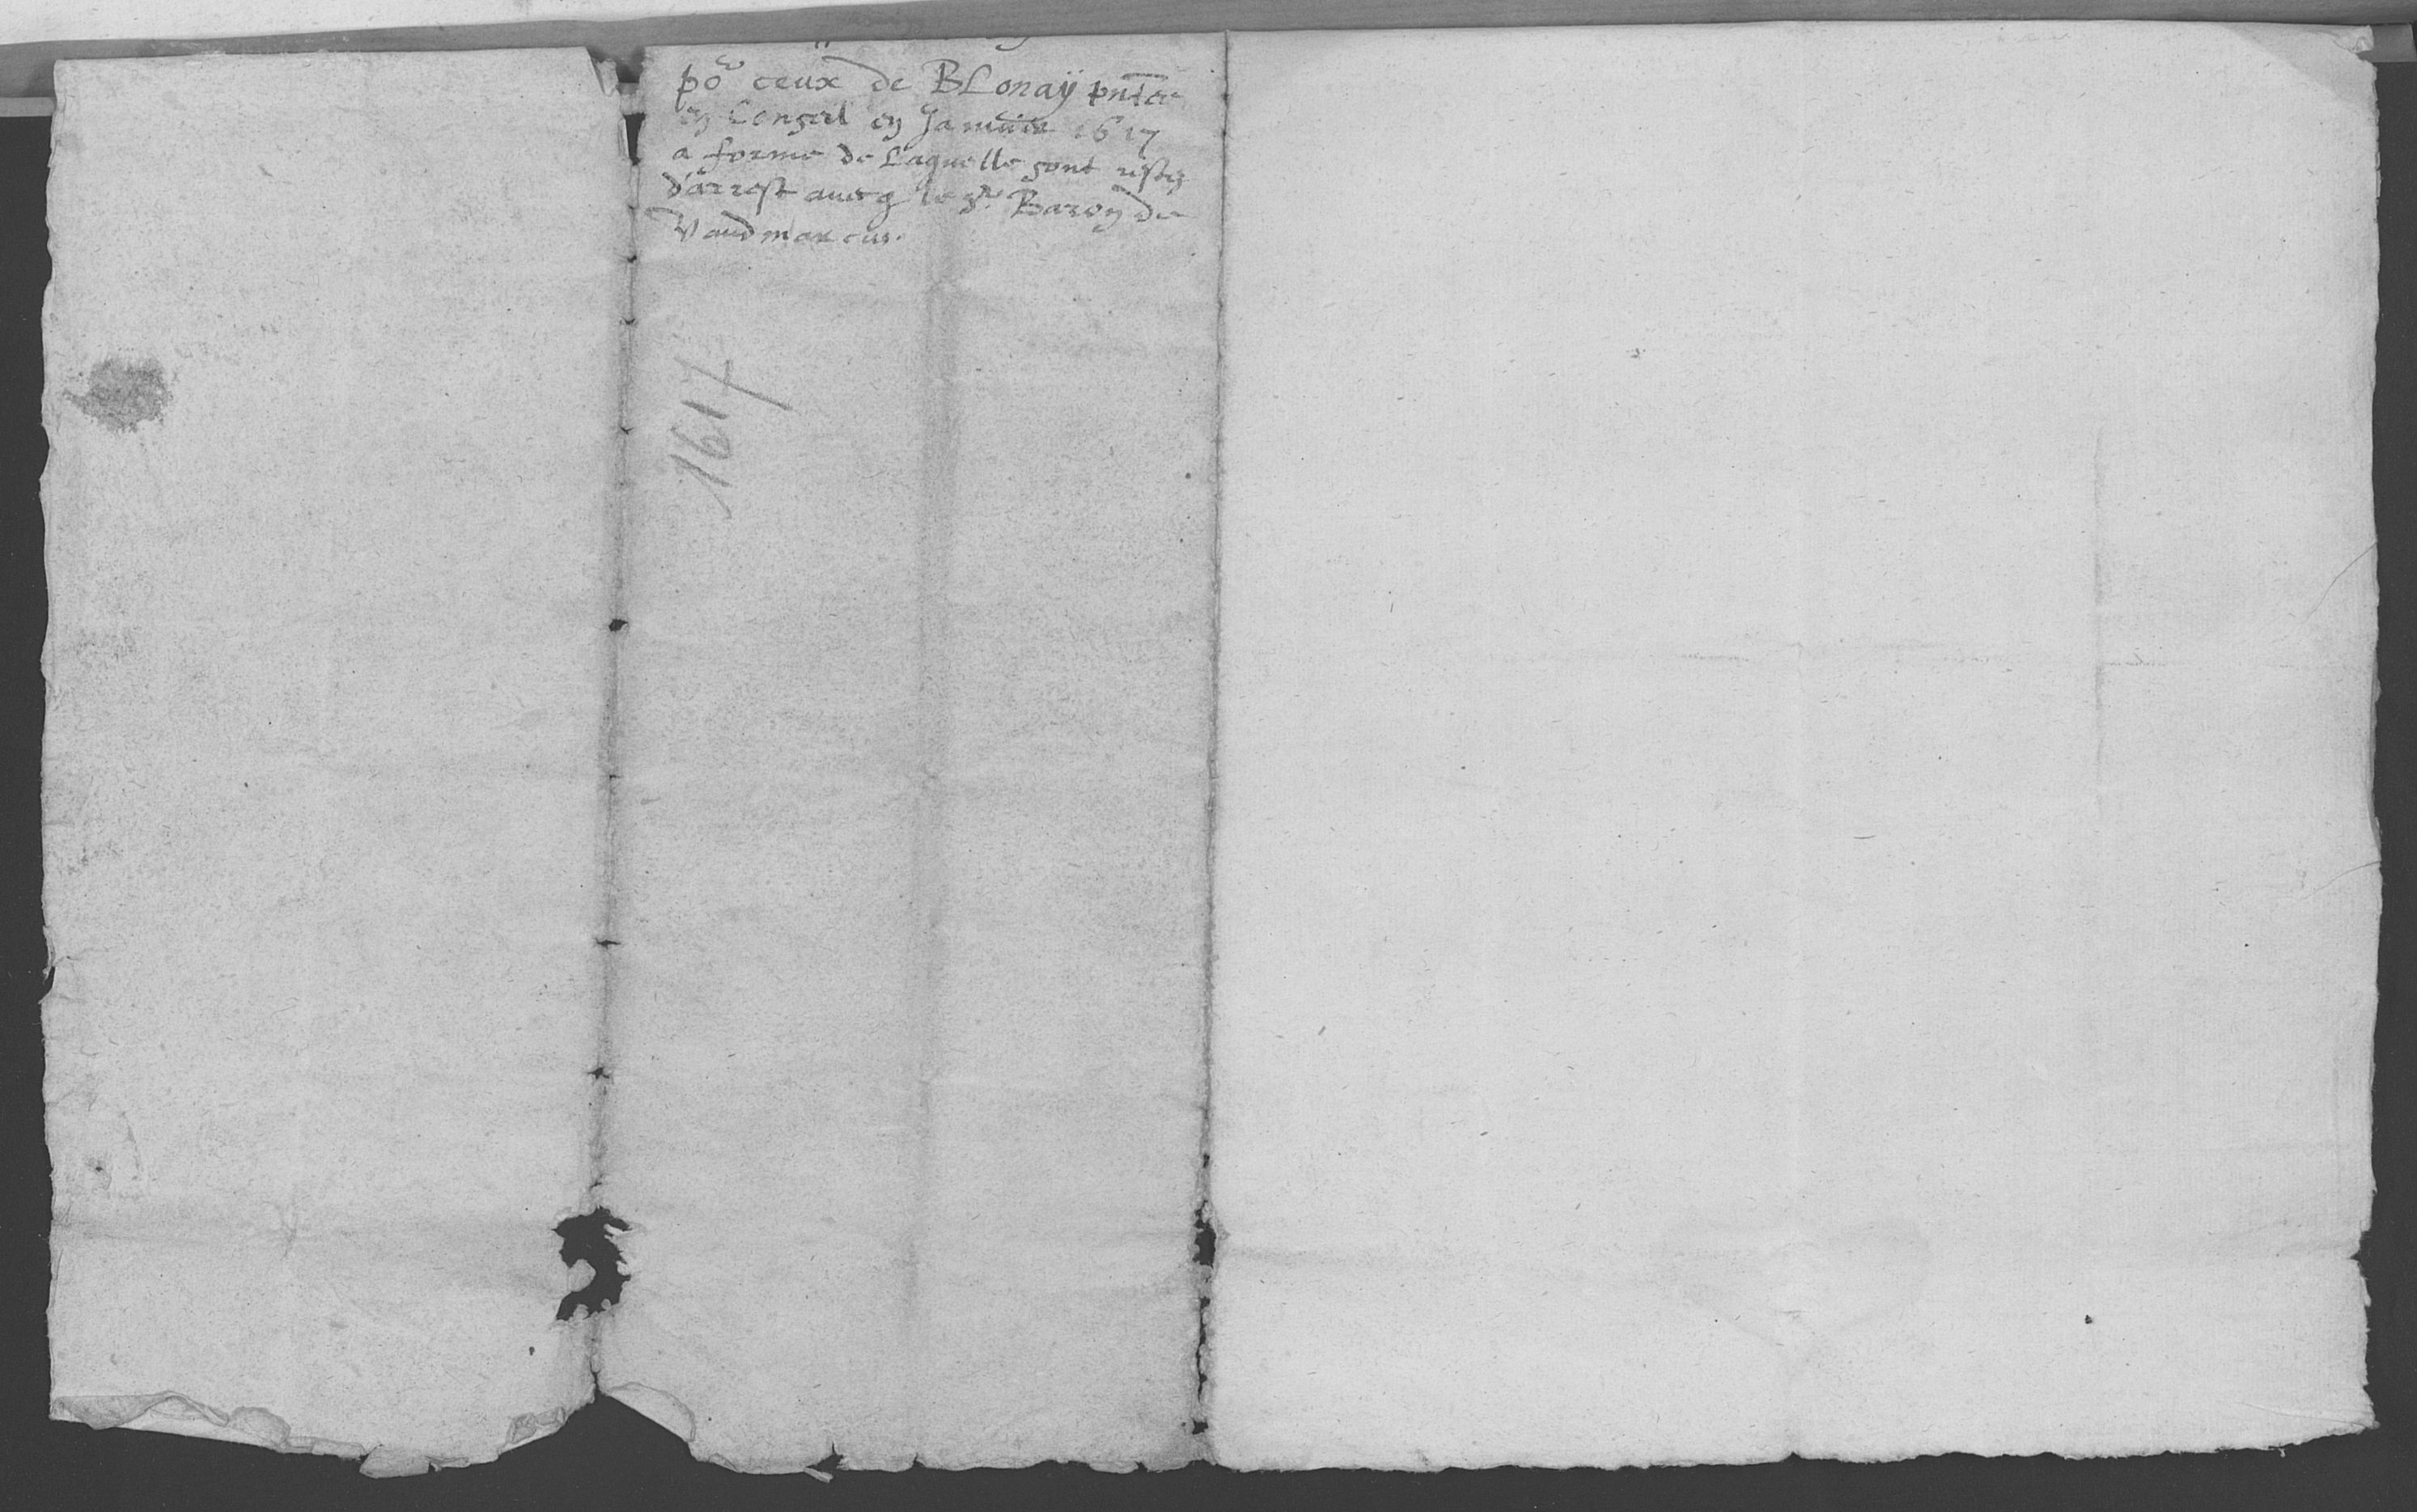 po^r ceux de BLonaÿ pnte
en Conseil en Januier 1617
a forme de Laquelle sont restez
d'arrest auecq le s^r. Baron de
Vaudmarcus.
1617